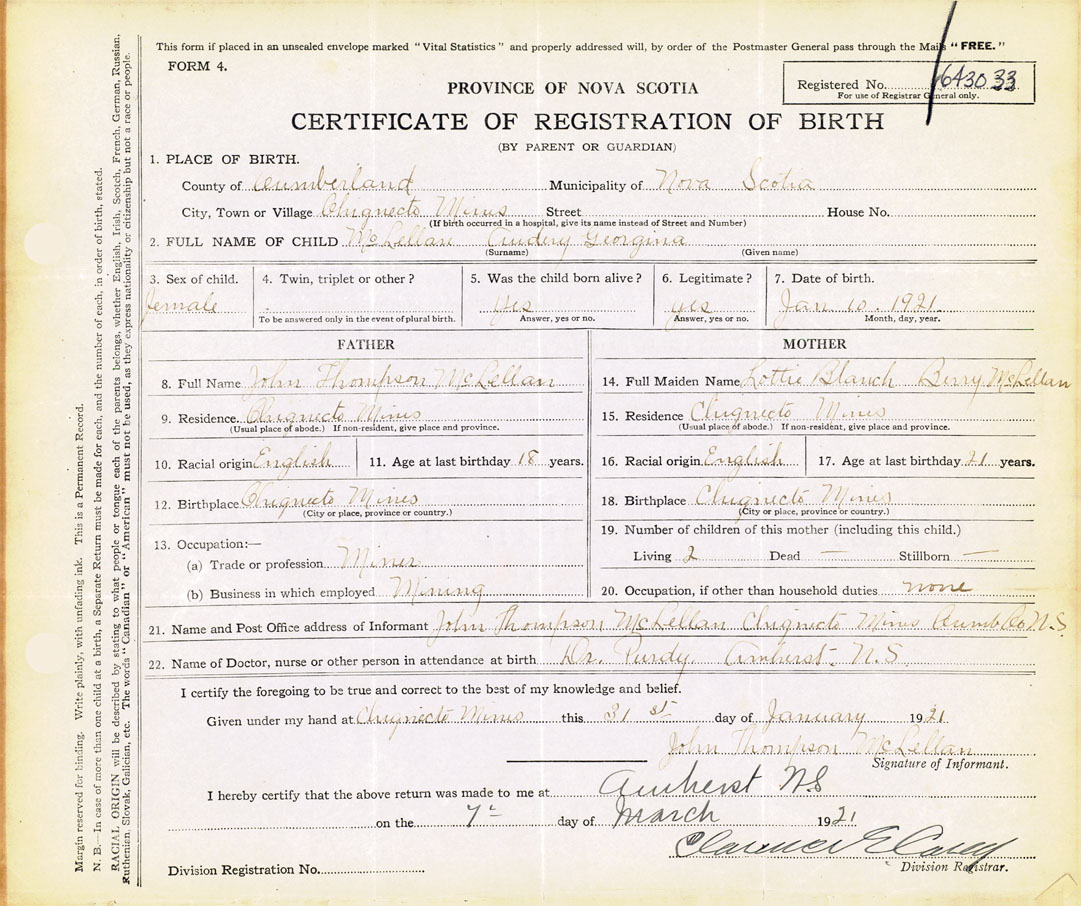 This form if placed in an unsealed envelope marked "Vital Statistics" and properly addressed will, by order of the Postmaster General pass through the Mails "FREE."
FORM 4.
Registered No. 643033
For use of Registrar General only.
PROVINCE OF NOVA SCOTIA
CERTIFICATE OF REGISTRATION OF BIRTH
(BY PARENT OR GUARDIAN)
1. PLACE OF BIRTH.
County of Cumberland Municipality of Nova Scotia
City, Town or Village Chignecto Mines Street House No.
(If birth occurred in a hospital, give its name instead of Street and Number)
2. FULL NAME OF CHILD McLellan Audery Georgina
(Surname) (Given name)
3. Sex of child. 4. Twin, triplet or other? 5. Was the child born alive? 6. Legitimate? 7. Date of birth.
female yes yes Jan 10. 1921
To be answered only in the event of plural birth. Answer, yes or no. Answer, yes or no. Month, day, year.
FATHER MOTHER
8. Full Name John Thompson McLellan 14. Full Maiden Name Lottie Blanch Berry McLellan
9. Residence. Chignecto Mines 15. Residence Chignecto Mines
(Usual place of abode.) If non-resident, give place and province. (Usual place of abode.) If non-resident, give place and province.
10. Racial origin English 11. Age at last birthday 18 years. 16. Racial origin English 17. Age at last birthday 21 years.
12. Birthplace Chignecto Mines 18. Birthplace Chignecto Mines
(City or place, province or country.) (City or place, province or country.)
19. Number of children of this mother (including this child.)
13. Occupation:—
Living 2 Dead — Stillborn —
(a) Trade or profession Miner
(b) Business in which employed Mining 20. Occupation, if other than household duties none
21. Name and Post Office address of Informant John Thompson McLellan Chignecto Mines Cumb Co N.S.
22. Name of Doctor, nurse or other person in attendance at birth Dr. Purdy. Amherst. N.S
I certify the foregoing to be true and correct to the best of my knowledge and belief.
Given under my hand at Chignecto Mines this 31 st day of January 1921
John Thompson McLellan
Signature of Informant.
I hereby certify that the above return was made to me at Amherst NS
on the 7- day of March 1921
Clarence E Casey
Division Registrar.
Division Registration No.
Margin reserved for binding. Write plainly, with unfading ink. This is a Permanent Record.
N. B.—In case of more than one child at a birth, a Separate Return must be made for each, and the number of each, in order of birth, stated.
RACIAL ORIGIN will be described by stating to what people or tongue each of the parents belongs, whether English, Irish, Scotch, French, German, Russian,
Ruthenian, Slovak, Galician, etc. The words "Canadian" or "American" must not be used, as they express nationality or citizenship but not a race or people.